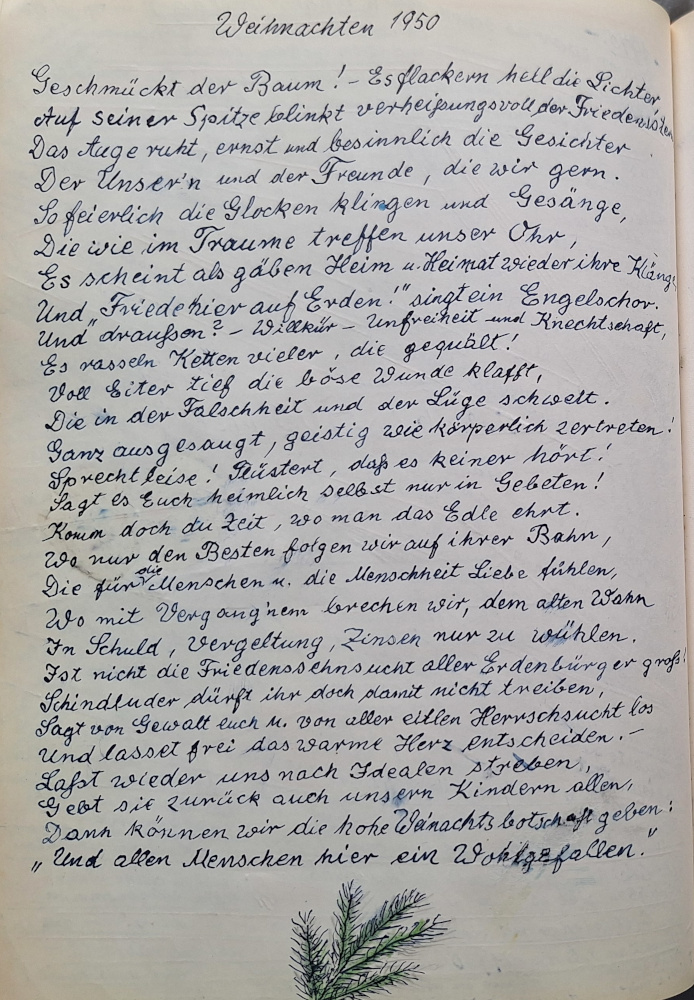 Weihnachten 1950
Geschmückt der Baum! – Es flackern hell die Lichter,
Auf seiner Spitze blinkt verheißungsvoll der Friedensstern
Das Auge ruht, ernst und besinnlich die Gesichter
Der Unser'n und der Freunde, die wir gern.
So feierlich die Glocken klingen und Gesänge,
Die wie im Traume treffen unser Ohr,
Es scheint als gäben Heim u. Heimat wieder ihre Klänge
Und „Friede hier auf Erden!" singt ein Engelschor.
Und draußen? – Willkür – Unfreiheit und Knechtschaft,
Es rasseln Ketten vieler, die gequält!
Voll Eiter tief die böse Wunde klafft,
Die in der Falschheit und der Lüge schwelt.
Ganz ausgesaugt, geistig wie körperlich zertreten!
Sprecht leise! Flüstert, daß es keiner hört!
Sagt es Euch heimlich selbst nur in Gebeten!
Komm doch du Zeit, wo man das Edle ehrt.
Wo nur den Besten folgen wir auf ihrer Bahn,
Die für die Menschen u. die Menschheit Liebe fühlen,
Wo mit Vergang'nem brechen wir, dem alten Wahn
In Schuld, Vergeltung, Zinsen nur zu wühlen.
Ist nicht die Friedenssehnsucht aller Erdenbürger groß!
Schindluder dürft ihr doch damit nicht treiben,
Sagt von Gewalt euch u. von aller eitlen Herrschsucht los
Und lasset frei das warme Herz entscheiden. –
Laßt wieder uns nach Idealen streben,
Gebt sie zurück auch unsern Kindern allen,
Dann können wir die hohe Weinachtsbotschaft geben:
„Und allen Menschen hier ein Wohlgefallen."